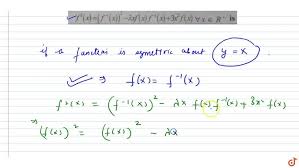 f²(x) = (f⁻¹(x))² - λx f(x) f⁻¹(x) + 3x² f(x) ∀ x ∈ R⁺ is
if a function is symmetric about y = x
⇒ f(x) = f⁻¹(x)
f²(x) = (f⁻¹(x))² - λx f(x) f⁻¹(x) + 3x² f(x)
⇒ (f(x))² = (f(x))² - λx